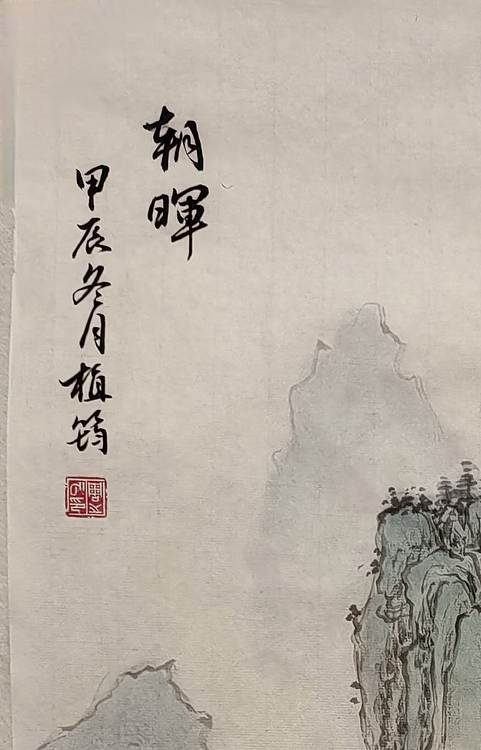 朝暉
甲辰冬月植筠